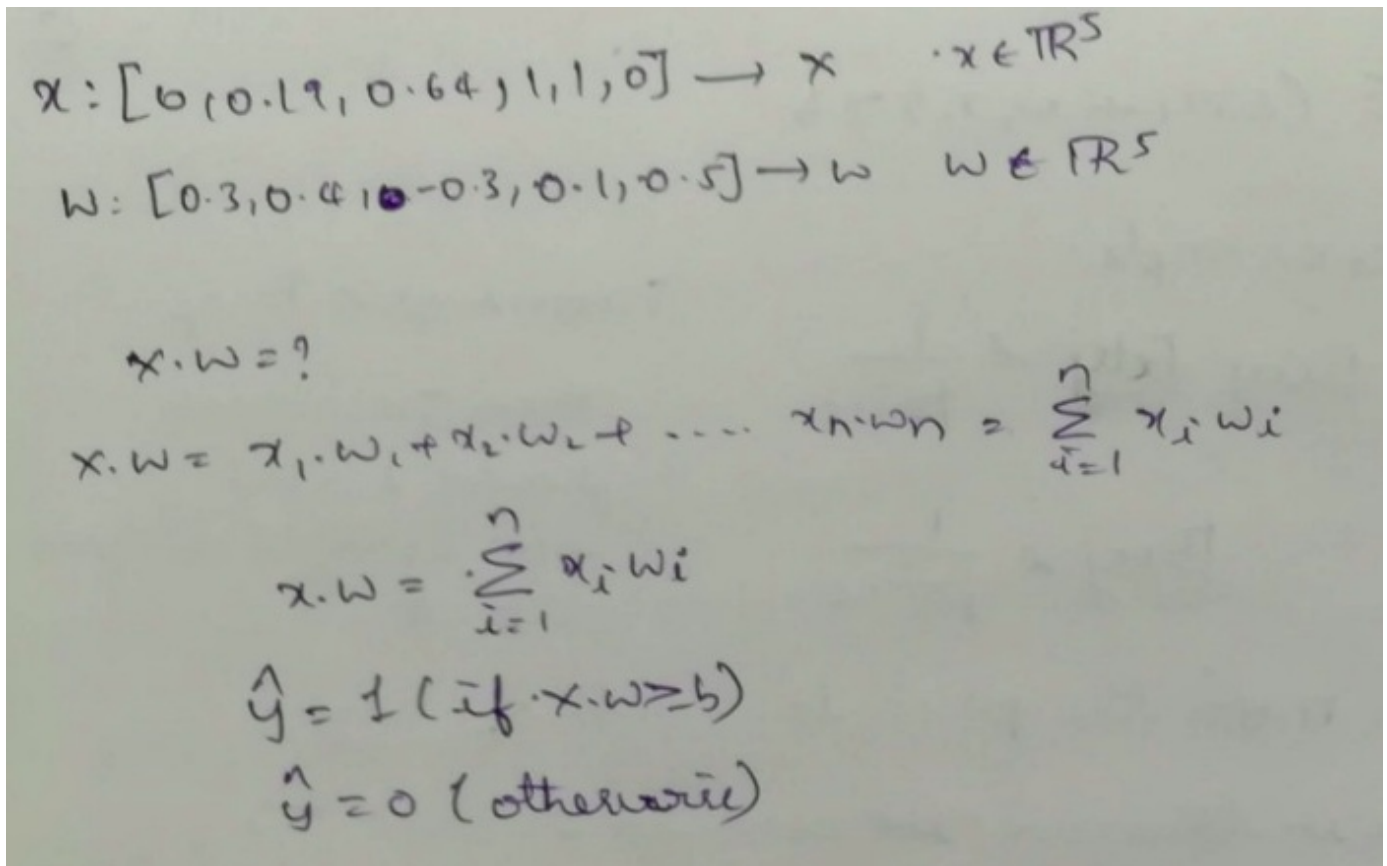 x : [0, 0.19, 0.64, 1, 1, 0] → x . x ∈ ℝ⁵
W : [0.3, 0.4, -0.3, 0.1, 0.5] → w w ∈ ℝ⁵
x . w = ?
x . w = x₁ . w₁ + x₂ . w₂ + .... xₙ . wₙ = ∑ⁿᵢ₌₁ xᵢ wᵢ
x . w = ∑ⁿᵢ₌₁ xᵢ wᵢ
ŷ = 1 (if x . w ≥ b)
ŷ = 0 (otherwise)